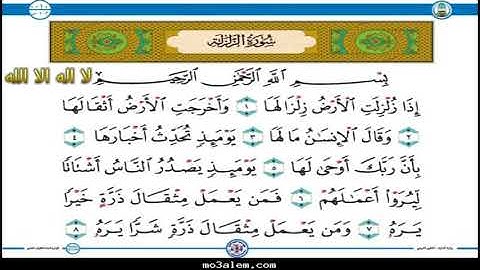 سُورَةُ الزَّلْزَلَةِ
لا اله الا الله
بِسْمِ ٱللَّهِ ٱلرَّحْمَٰنِ ٱلرَّحِيمِ
إِذَا زُلْزِلَتِ ٱلْأَرْضُ زِلْزَالَهَا ١ وَأَخْرَجَتِ ٱلْأَرْضُ أَثْقَالَهَا
٢ وَقَالَ ٱلْإِنسَٰنُ مَا لَهَا ٣ يَوْمَئِذٍ تُحَدِّثُ أَخْبَارَهَا ٤
بِأَنَّ رَبَّكَ أَوْحَىٰ لَهَا ٥ يَوْمَئِذٍ يَصْدُرُ ٱلنَّاسُ أَشْتَاتًا
لِّيُرَوْا۟ أَعْمَٰلَهُمْ ٦ فَمَن يَعْمَلْ مِثْقَالَ ذَرَّةٍ خَيْرًا
يَرَهُۥ ٧ وَمَن يَعْمَلْ مِثْقَالَ ذَرَّةٍ شَرًّا يَرَهُۥ ٨
mo3alem.com